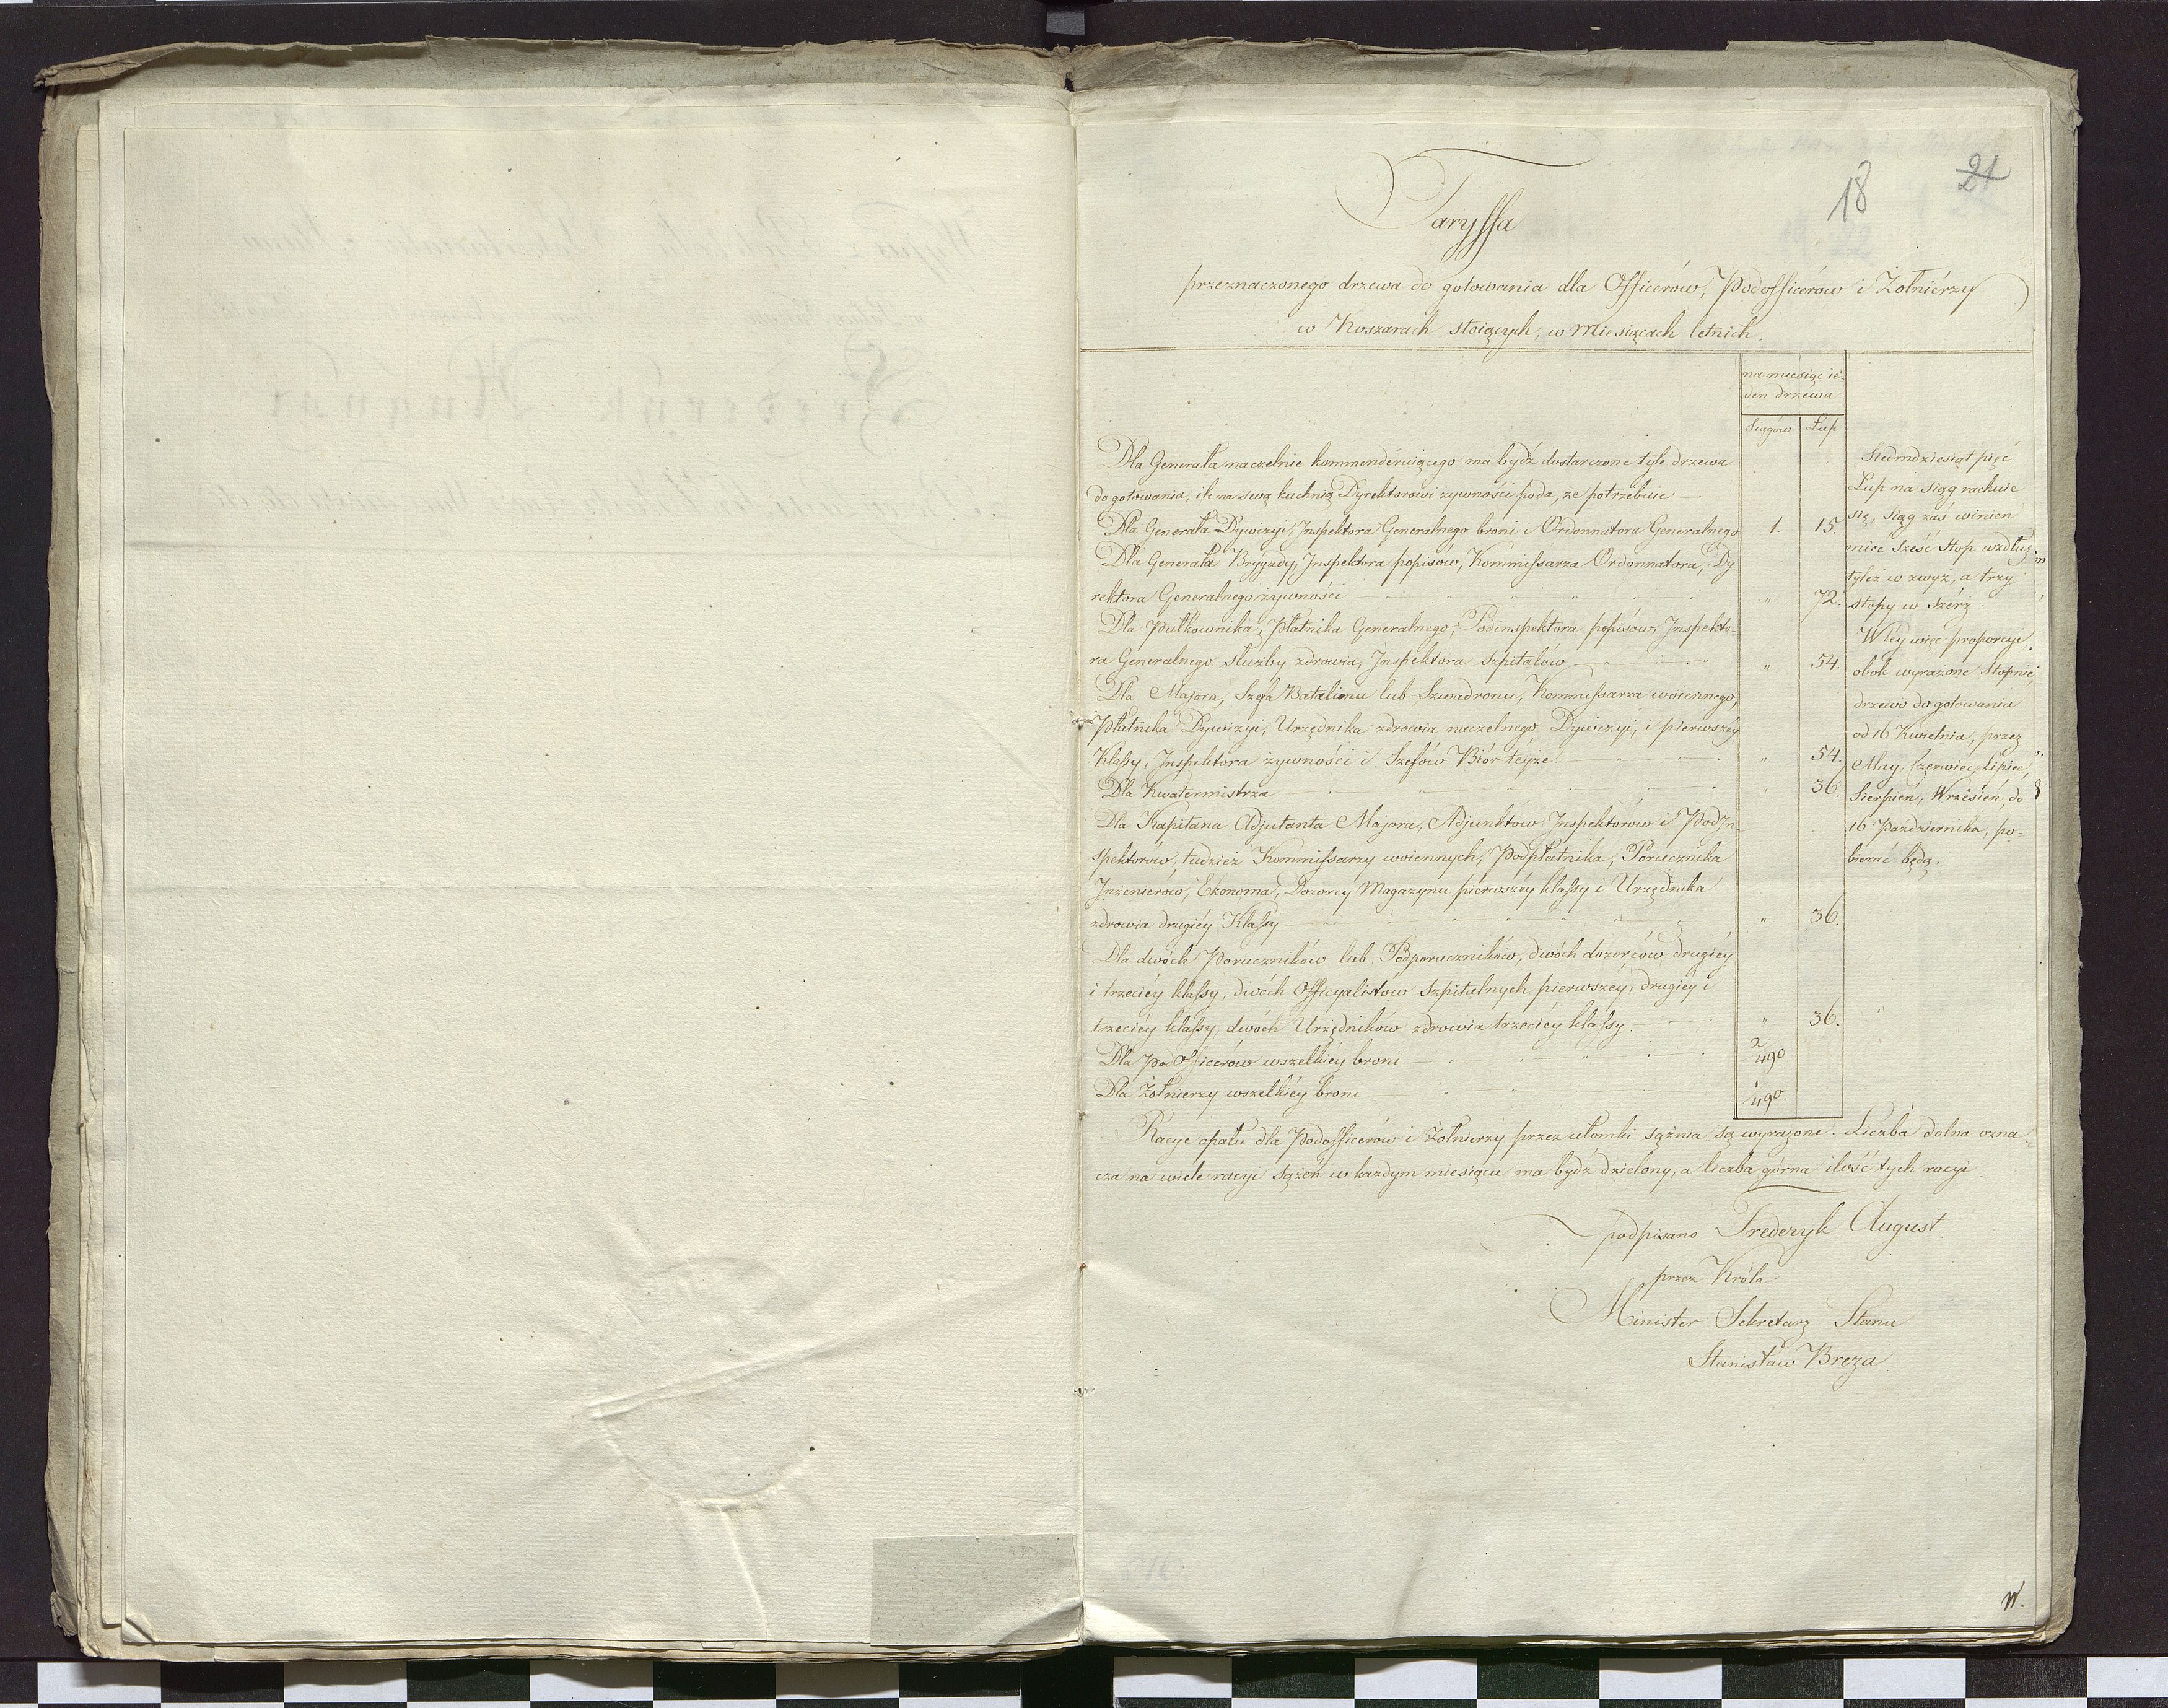 18
21
Taryffa
przeznaczonego drzewa do gotowania dla Officerów, Podofficerów i Żołniérzy
w Koszarach stoiących, w Miesiącach letnich.
na miesiąc ie-
den drzewa
Siągów Łup
Dla Generała naczelnie kommenderuiącego ma bydź dostarczone tyle drzewa
do gotowania, ile na swą kuchnię Dyrektorowi żywności poda, że potrzebuie
Dla Generała Dywizyi, Inspektora Generalnego broni i Ordonnatora Generalnego 1. 15.
Dla Generała Brygady, Inspektora popisów, Kommissarza Ordonnatora, Dy
rektora Generalnego żywności " 72.
Dla Pułkownika, Płatnika Generalnego, Podinspektora popisów, Inspekto-
ra Generalnego służby zdrowia, Inspektora Szpitalów " 54.
Dla Majora, Szefa Batalionu lub Szwadronu, Kommissarza woiennego,
Płatnika Dywizyi, Urzędnika zdrowia naczelnego Dywizyi, i pierwszéy
Klassy, Inspektora żywności i Szefów Biór téyże " 54.
Dla Kwatermistrza " 36.
Dla Kapitana Adjutanta Majora, Adjunktów Inspektorów i PodIn-
spektorów, tudzież Kommissarzy woiennych, Podpłatnika, Porucznika
Inżenierów, Ekonoma, Dozorcy Magazynu pierwszéy klassy i Urzędnika
zdrowia drugiéy Klassy " 36.
Dla dwóch Poruczników lub Podporuczników, dwóch dozorców drugiéy
i trzeciéy klassy, dwóch Officyalistów Szpitalnych pierwszéy, drugiéy i
trzeciéy klassy, dwóch Urzędników zdrowia trzeciéy klassy. " 36.
Dla PodOfficerów wszelkiéy broni 2/490
Dla Żołnierzy wszelkiéy broni 1/490.
Siedmdziesiąt pięć
Łup na siąg rachuie
się, siąg zaś winien
mieć sześć stop wzdłuż,
tyleż w zwyż, a trzy
stopy w szérz.
W téy więc proporcyi
obok wyrażone Stopnie,
drzewo do gotowania
od 16 Kwietnia, przez
May, Czerwiec, Lipiec,
Sierpień, Wrzesień, do
16 Października, po-
bierać będą.
Racye opału dla Podofficerów i Żołnierzy przez ułomki sążnia są wyrażone. Liczba dolna ozna-
cza na wiele racyi Sążeń w każdym miesiącu ma bydź dzielony, a liczba górna ilość tych racyi.
podpisano Frederyk August
przez Króla
Minister Sekretarz Stanu
Stanisław Breza.